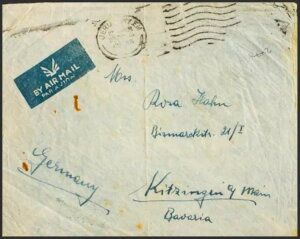 JERUSALEM
BY AIR MAIL
PAR AVION
Mrs.
Rosa Hahn
Bismarckstr. 21/I
Germany
Kitzingen a/ Main
Bavaria